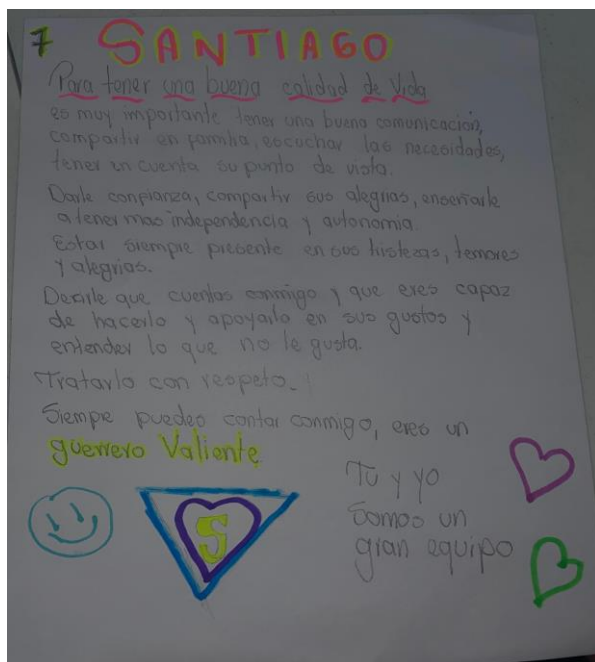 7 SANTIAGO
Para tener una buena calidad de Vida
es muy importante tener una buena comunicación,
compartir en familia, escuchar las necesidades,
tener en cuenta su punto de vista.
Darle confianza, compartir sus alegrias, enseñarle
a tener mas independencia y autonomia.
Estar siempre presente en sus tristezas, temores
y alegrias.
Decirle que cuentas conmigo y que eres capaz
de hacerlo y apoyarlo en sus gustos y
entender lo que no le gusta.
Tratarlo con respeto.
Siempre puedes contar conmigo, eres un
guerrero Valiente
Tu y yo
Somos un
gran equipo
S